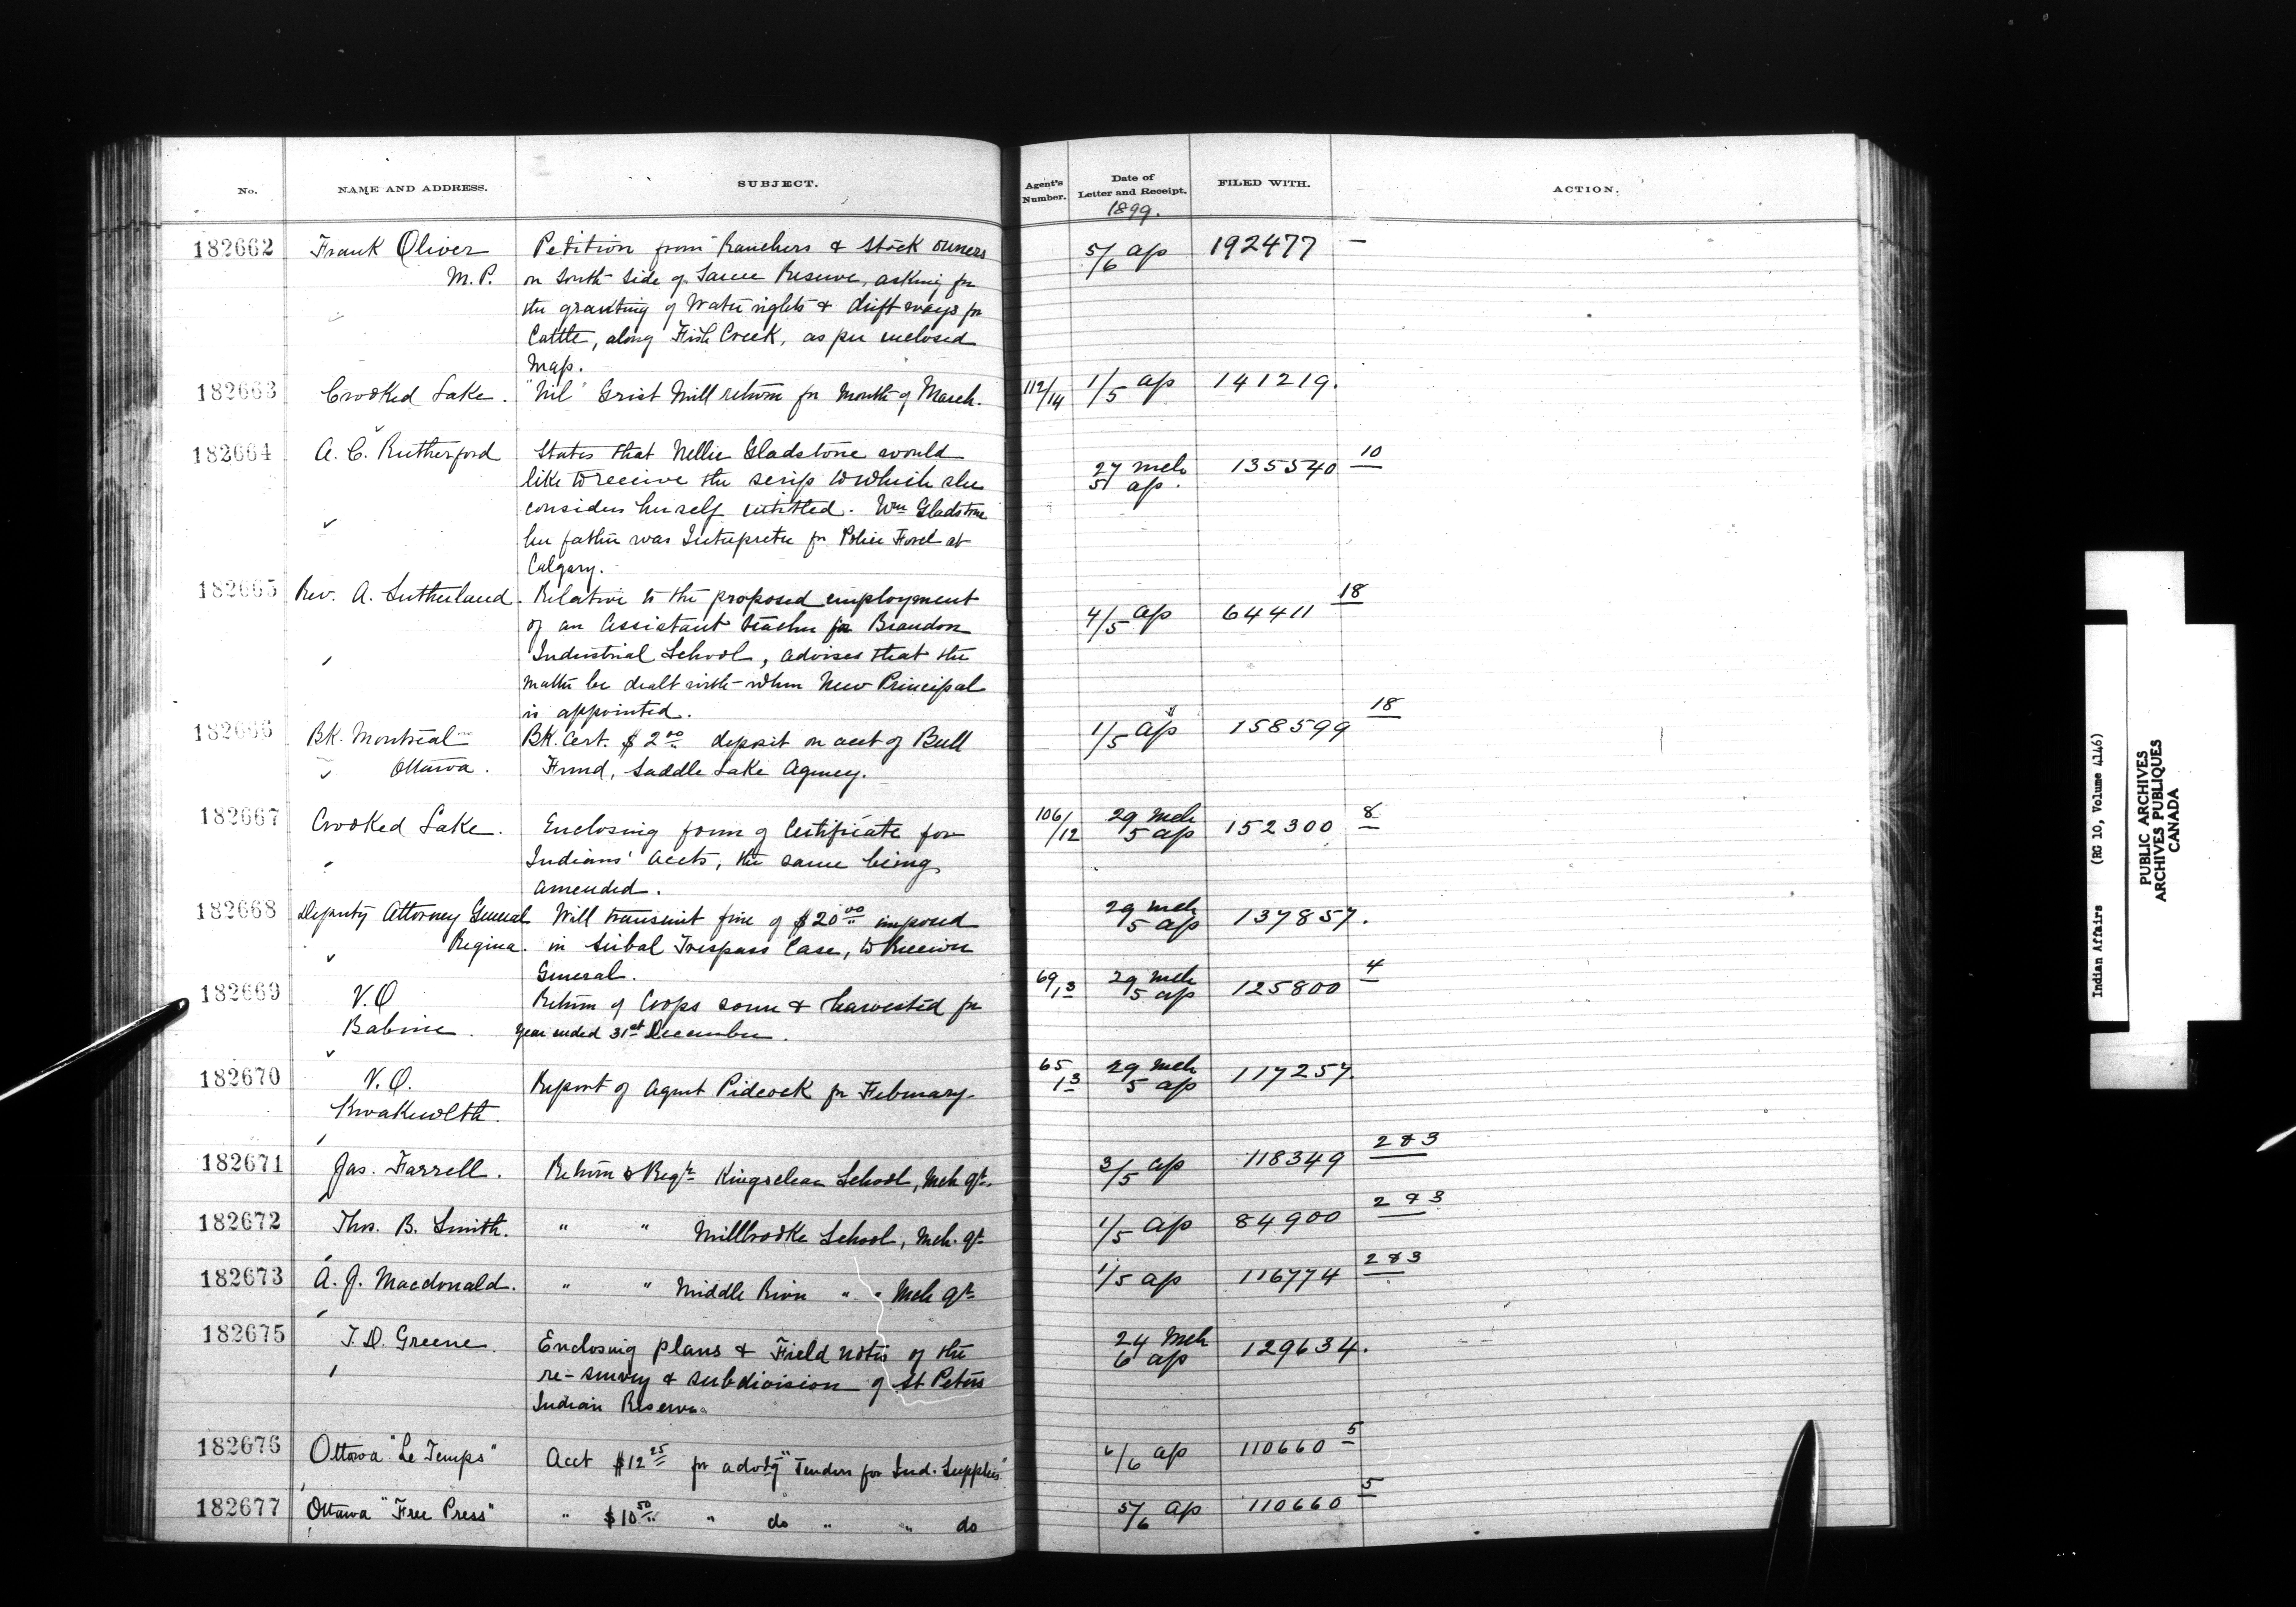 No. NAME AND ADDRESS. SUBJECT. Agent's Number. Date of Letter and Receipt. FILED WITH. ACTION.
1899.
182662 Frank Oliver Petition from Ranchers & Stock owners 5/6 ap 192477 —
M.P. on South Side of Sarcee Reserve, asking for
the granting of Water rights & drift ways for
Cattle, along Fish Creek, as per enclosed
Map.
182663 Crooked Lake. "Nil" Grist Mill return for Month of March. 112/14 1/5 ap 141219.
182664 A. C. Rutherford States that Nellie Gladstone would 27 mch 135540 10
like to receive the scrip to which she 5 ap.
considers herself entitled. Wm Gladstone
her father was Interpreter for Police Force at
Calgary.
182665 Rev. A. Sutherland. Relative to the proposed employment 4/5 ap 64411 18
of an Assistant teacher for Brandon
Industrial School, advises that the
matter be dealt with when New Principal
is appointed.
182666 BK. Montreal BK. Cert. $2 00 deposit on acct of Bull 1/5 ap 158599 18
Ottawa. Fund, Saddle Lake Agency.
182667 Crooked Lake. Enclosing form of Certificate for 106/12 29 mch 152300 8
Indians' accts, the same being 5 ap
amended.
182668 Deputy Attorney General Will transmit fine of $20 00 imposed 29 mch 137857.
Regina. in Trespass Case, to Receiver 5 ap
General.
182669 V.O Return of Crops sown & harvested for 69/13 29 mch 125800 4
Babine. year ended 31st December. 5 ap
182670 V.O. Report of Agent Pidcock for February. 65 13 29 mch 117257.
Kwakewlth. 5 ap
182671 Jas. Farrell. Return & Reqn Kingsclear School, Mch qr. 3/5 ap 118349 2 & 3
182672 Thos. B. Smith. " " Millbrooke School, Mch. qr 1/5 ap 84900 2 & 3
182673 A. J. Macdonald. " " Middle River " " Mch qr 1/5 ap 116774 2 & 3
182675 T.D. Greene. Enclosing plans & Field notes of the 24 Mch 129634.
re-survey & subdivision of St Peters 6 ap
Indian Reserve.
182676 Ottawa "Le Temps" Acct $12 25 for advtg "Tenders for Ind. Supplies" 6/6 ap 110660 5
182677 Ottawa "Free Press" " $10 50 " do " " do 5/6 ap 110660 5
Indian Affairs (RG 10, Volume 4146)
PUBLIC ARCHIVES
ARCHIVES PUBLIQUES
CANADA